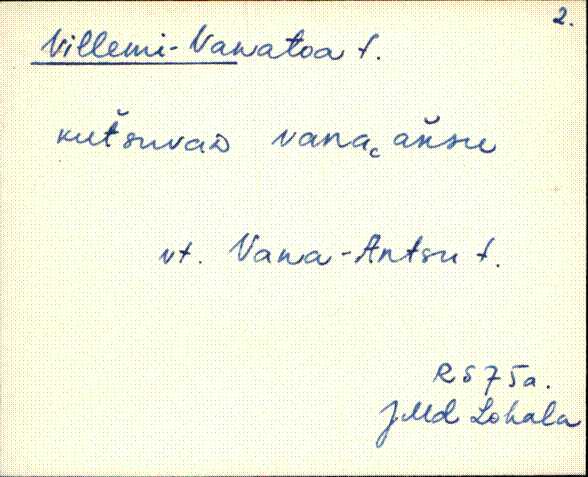 2.
Villemi-Vanatoa t.
kutšuvaD vana͔ añsu
vt. Vana-Antsu t.
RS 75a.
JMd Lohala